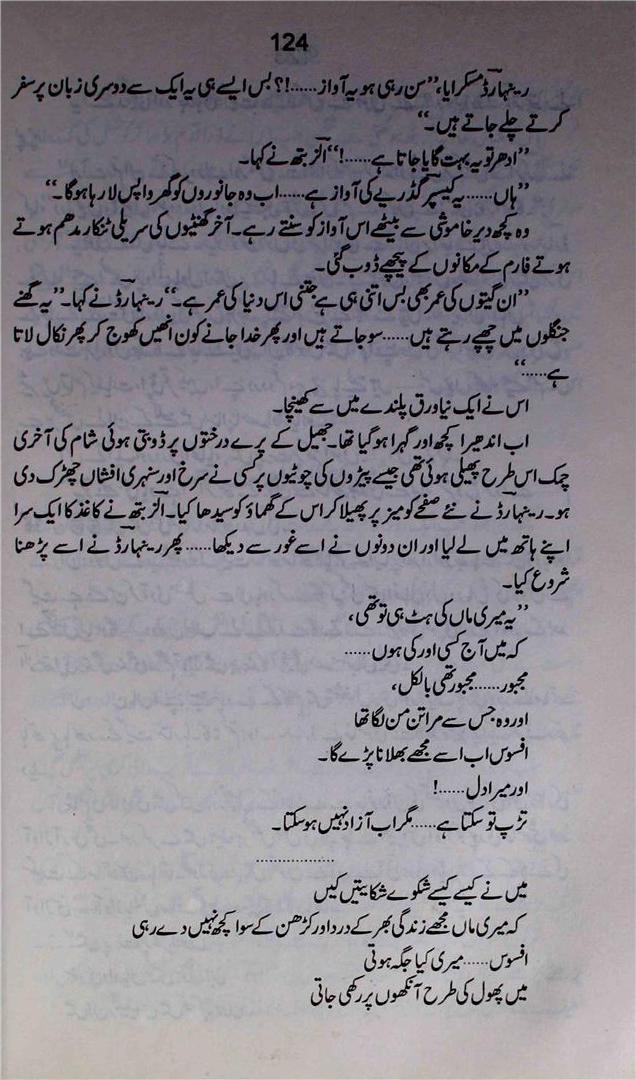 124
رینہارڈ مسکرایا، ”سن رہی ہو یہ آواز......!؟ بس ایسے ہی یہ ایک سے دوسری زبان پر سفر
کرتے چلے جاتے ہیں۔“
”ادھر تو یہ بہت گایا جاتا ہے......!“ الزبتھ نے کہا۔
”ہاں...... یہ کیسپر گڈریے کی آواز ہے...... اب وہ جانوروں کو گھر واپس لا رہا ہوگا۔“
وہ کچھ دیر خاموشی سے بیٹھے اس آواز کو سنتے رہے۔ آخر گھنٹیوں کی سریلی ٹنکار مدھم ہوتے
ہوتے فارم کے مکانوں کے پیچھے ڈوب گئی۔
”ان گیتوں کی عمر بھی بس اتنی ہی ہے جتنی اس دنیا کی عمر ہے۔“ رینہارڈ نے کہا۔ ”یہ گھنے
جنگلوں میں چھپے رہتے ہیں...... سو جاتے ہیں اور پھر خدا جانے کون انھیں کھوج کر پھر نکال لاتا
ہے......“
اس نے ایک نیا ورق پلندے میں سے کھینچا۔
اب اندھیرا کچھ اور گہرا ہو گیا تھا۔ جھیل کے پرے درختوں پر ڈوبتی ہوئی شام کی آخری
چمک اس طرح پھیلی ہوئی تھی جیسے پیڑوں کی چوٹیوں پر کسی نے سرخ اور سنہری افشاں چھڑک دی
ہو۔ رینہارڈ نے نئے صفحے کو میز پر پھیلا کر اس کے گھماؤ کو سیدھا کیا۔ الزبتھ نے کاغذ کا ایک سرا
اپنے ہاتھ میں لے لیا اور ان دونوں نے اسے غور سے دیکھا...... پھر رینہارڈ نے اسے پڑھنا
شروع کیا۔
”یہ میری ماں کی ہٹ ہی تو تھی،
کہ میں آج کسی اور کی ہوں......
مجبور...... مجبور تھی بالکل،
اور وہ جس سے مرا تن من لگا تھا
افسوس اب اسے مجھے بھلانا پڑے گا۔
اور میرا دل......!
تڑپ تو سکتا ہے...... مگر اب آزاد نہیں ہو سکتا۔
................
میں نے کیسے کیسے شکوے شکایتیں کیں
کہ میری ماں مجھے زندگی بھر کے درد اور کڑھن کے سوا کچھ نہیں دے رہی
افسوس...... میری کیا جگہ ہوتی
میں پھول کی طرح آنکھوں پر رکھی جاتی